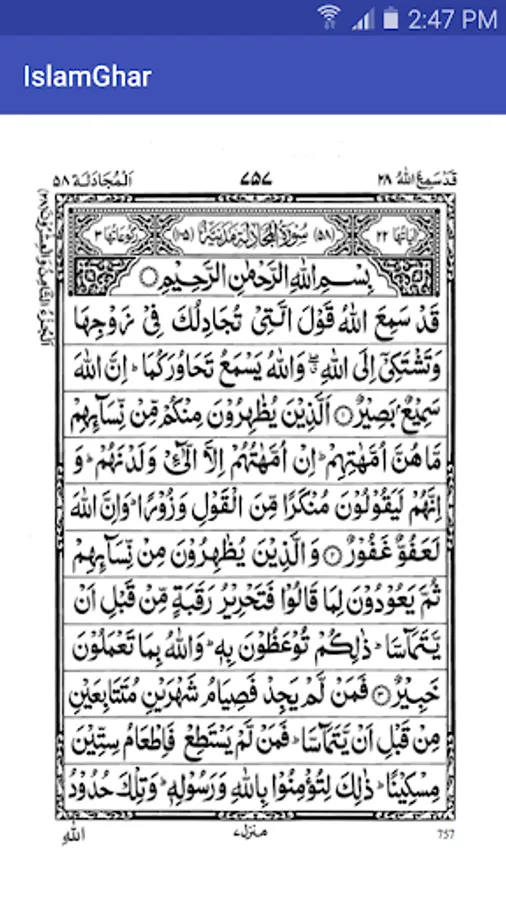 2:47 PM
IslamGhar
قَدْ سَمِعَ اللّٰهُ ٢٨
٧٥٧
اَلْمُجَادَلَة ٥٨
اٰيَاتُهَا ٢٢
(٥٨) سُوْرَةُ الْمُجَادِلَةِ مَدَنِيَّةٌ (١٠٥)
رُكُوْعَاتُهَا ٣
بِسْمِ اللّٰهِ الرَّحْمٰنِ الرَّحِيْمِ
قَدْ سَمِعَ اللّٰهُ قَوْلَ الَّتِيْ تُجَادِلُكَ فِيْ زَوْجِهَا
وَتَشْتَكِيْٓ اِلَى اللّٰهِ ۖ وَاللّٰهُ يَسْمَعُ تَحَاوُرَكُمَا ؕ اِنَّ اللّٰهَ
سَمِيْعٌۢ بَصِيْرٌ ۝ اَلَّذِيْنَ يُظٰهِرُوْنَ مِنْكُمْ مِّنْ نِّسَآئِهِمْ
مَّا هُنَّ اُمَّهٰتِهِمْ ؕ اِنْ اُمَّهٰتُهُمْ اِلَّا الّٰٓـِٔيْ وَلَدْنَهُمْ ؕ وَ
اِنَّهُمْ لَيَقُوْلُوْنَ مُنْكَرًا مِّنَ الْقَوْلِ وَزُوْرًا ؕ وَاِنَّ اللّٰهَ
لَعَفُوٌّ غَفُوْرٌ ۝٢ وَالَّذِيْنَ يُظٰهِرُوْنَ مِنْ نِّسَآئِهِمْ
ثُمَّ يَعُوْدُوْنَ لِمَا قَالُوْا فَتَحْرِيْرُ رَقَبَةٍ مِّنْ قَبْلِ اَنْ
يَّتَمَآسَّا ؕ ذٰلِكُمْ تُوْعَظُوْنَ بِهٖ ؕ وَاللّٰهُ بِمَا تَعْمَلُوْنَ
خَبِيْرٌ ۝٣ فَمَنْ لَّمْ يَجِدْ فَصِيَامُ شَهْرَيْنِ مُتَتَابِعَيْنِ
مِنْ قَبْلِ اَنْ يَّتَمَآسَّا ؕ فَمَنْ لَّمْ يَسْتَطِعْ فَاِطْعَامُ سِتِّيْنَ
مِسْكِيْنًا ؕ ذٰلِكَ لِتُؤْمِنُوْا بِاللّٰهِ وَرَسُوْلِهٖ ؕ وَتِلْكَ حُدُوْدُ
757
منزل ٧
اللّٰهِ